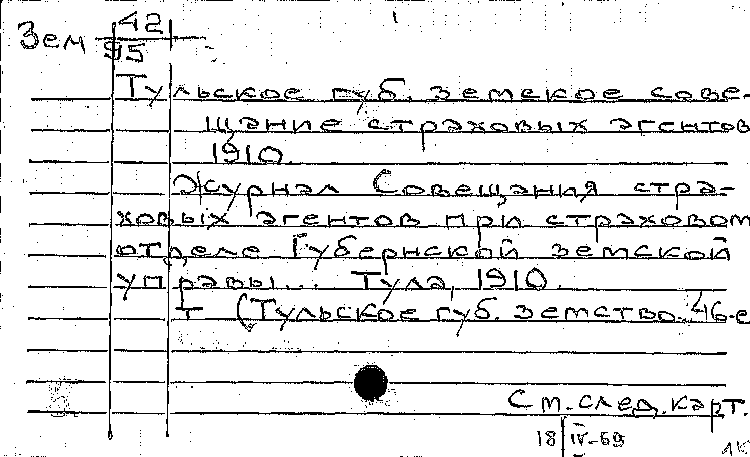 Зем 42
95
Тульское губ. земское сове-
щание страховых агентов
1910.
Журнал Совещания стра-
ховых агентов при страховом
отделе Губернской земской
управы... Тула, 1910.
т (Тульское губ. земство. 46-е
См. след. карт.
18 IV-69